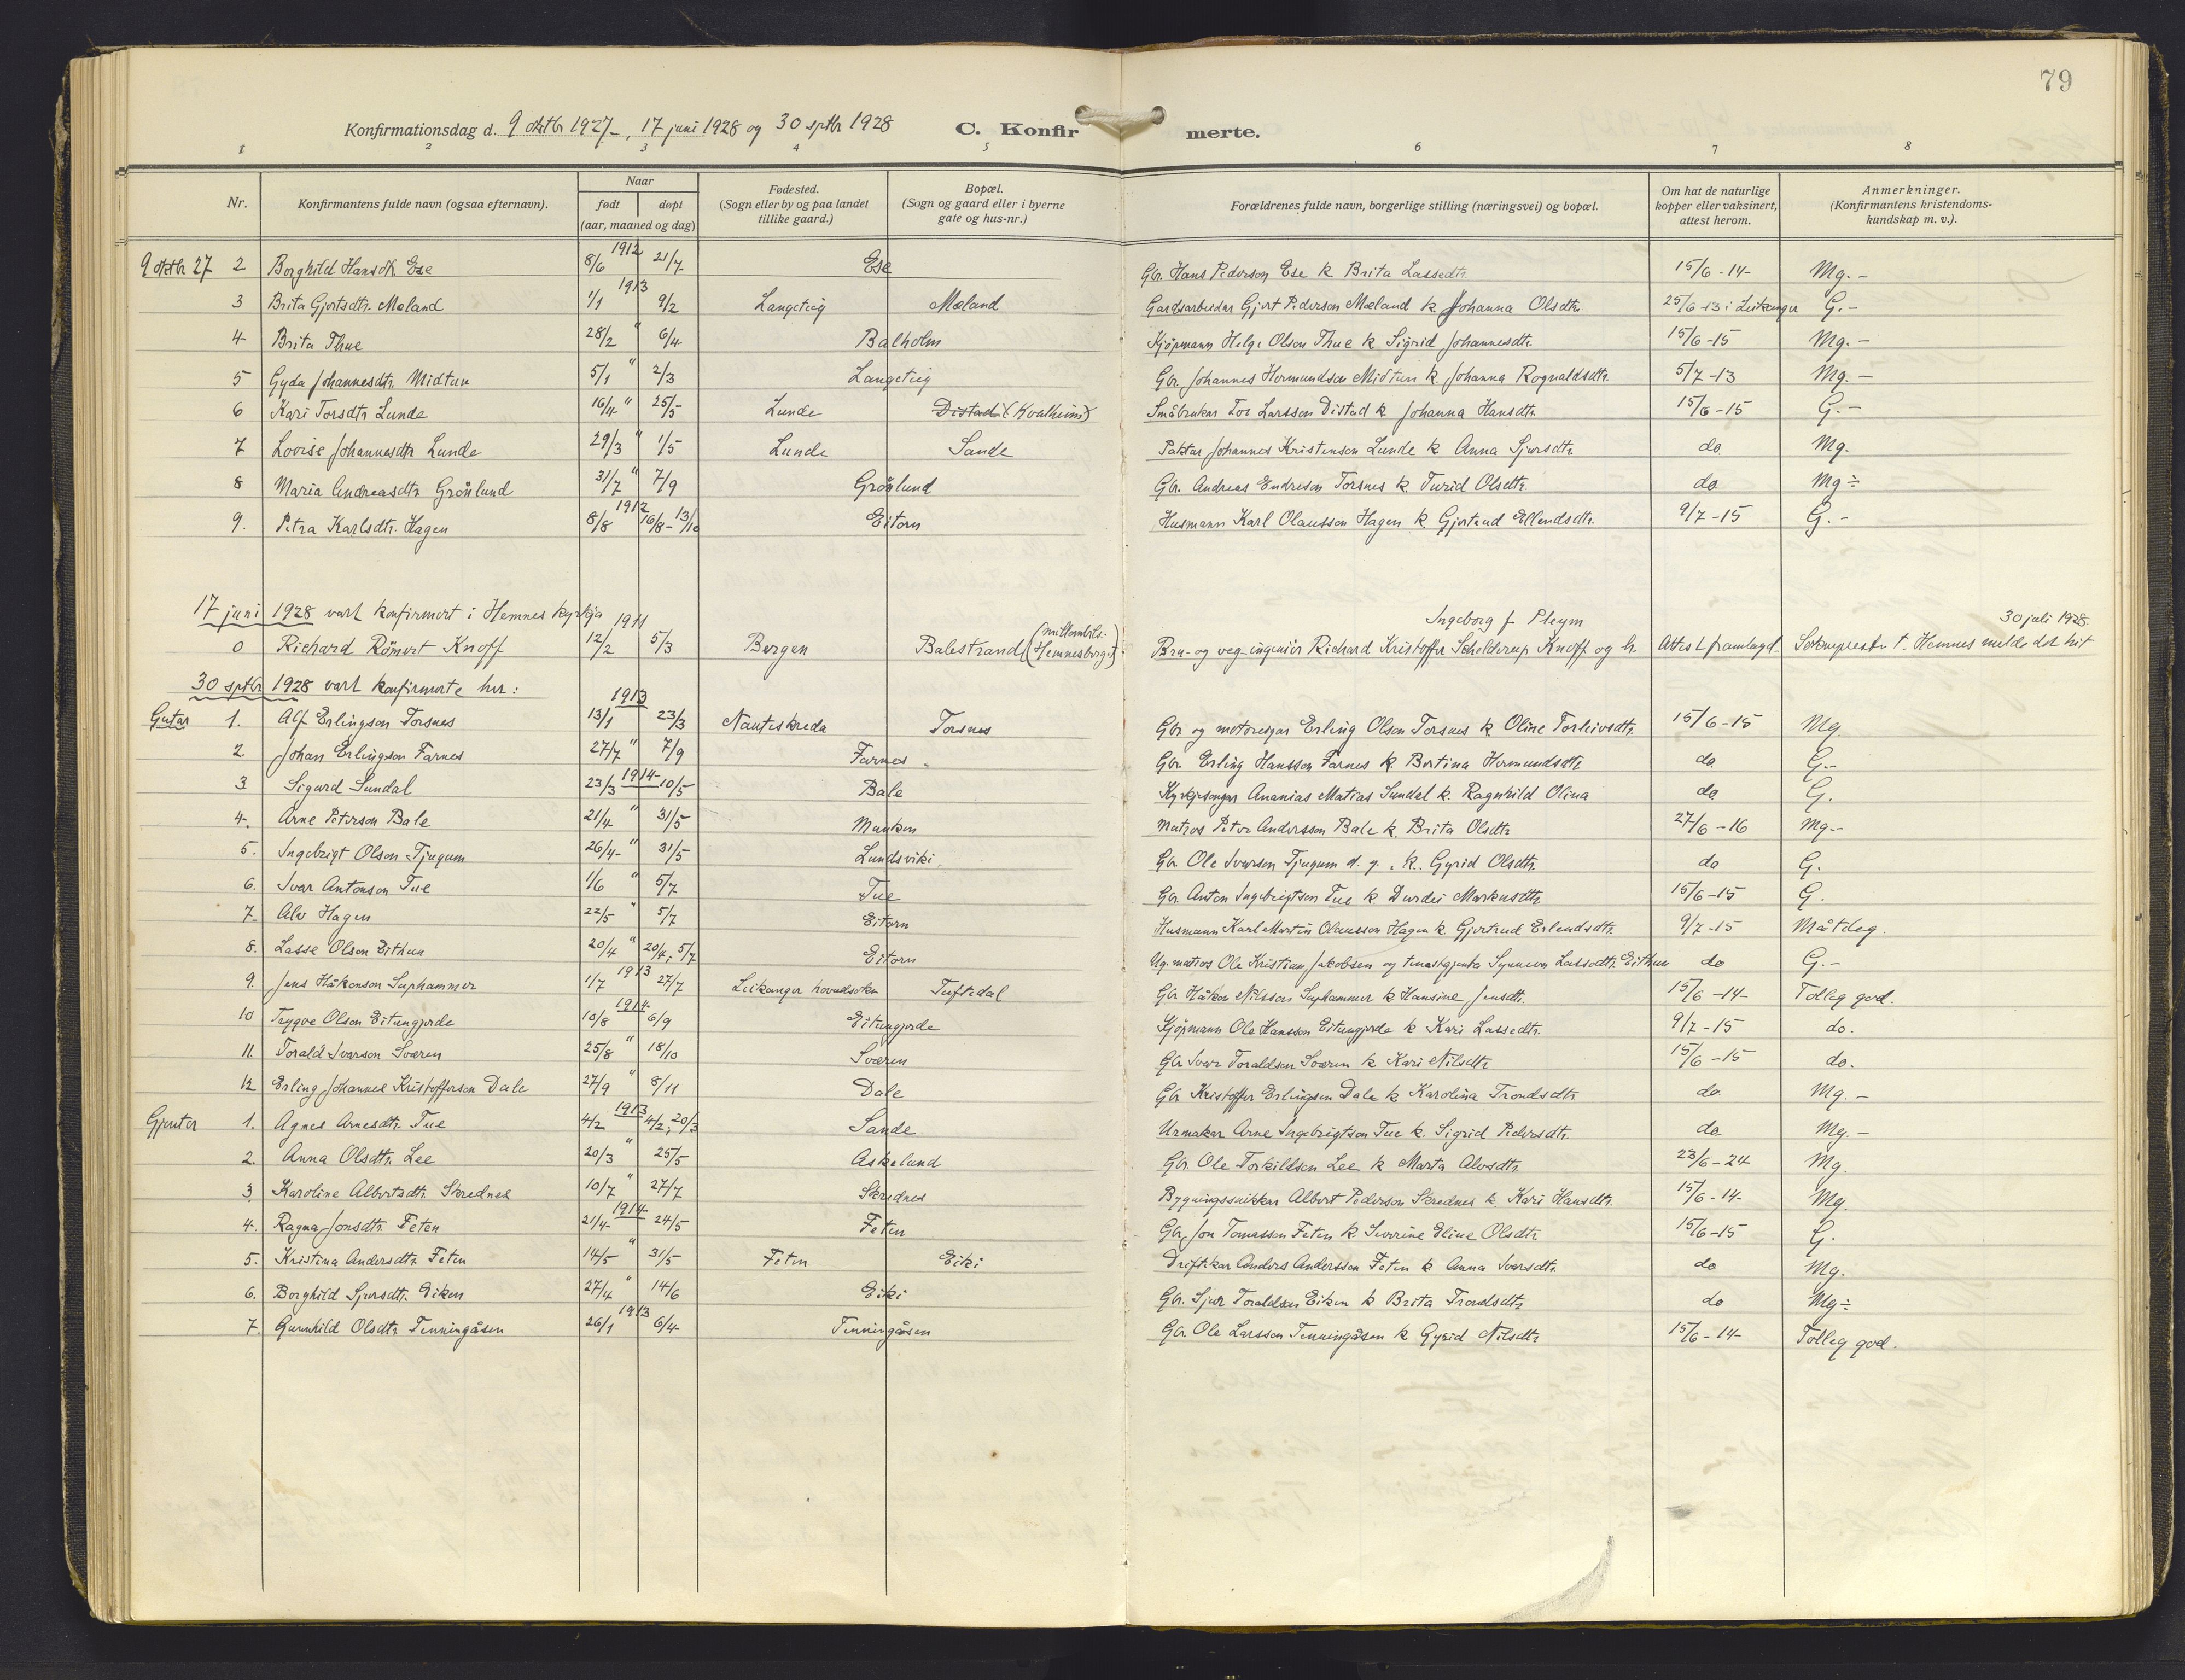 79
Konfirmationsdag d. 9 oktbr 1927-, 17 juni 1928 og 30 sptbr 1928 C. Konfirmerte.
1 2 3 4 5 6 7 8
Nr. Konfirmantens fulde navn (ogsaa efternavn). Naar født døpt (aar, maaned og dag) Fødested. (Sogn eller by og paa landet tillike gaard.) Bopæl. (Sogn og gaard eller i byerne gate og hus-nr.) Forældrenes fulde navn, borgerlige stilling (næringsvei) og bopæl. Om hat de naturlige kopper eller vaksinert, attest herom. Anmerkninger. (Konfirmantens kristendomskundskap m. v.).
9 oktbr 27 2 Borghild Hansdtr Ese 8/6 1912 21/7 Ese Gbr. Hans Pederson Ese k Brita Lassedtr. 15/6-14- Mg.-
3 Brita Gjertsdtr. Mæland 1/1 1913 9/2 Langeteig Mæland Gardsarbeidar Gjert Pederson Mæland k Johanna Olsdtr. 25/6-13 i Leikanger G.-
4 Brita Thue 28/2 " 6/4 Balholm Kjöpmann Helge Olson Thue k Sigrid Johannesdtr. 15/6-15 Mg.-
5 Gyda Johannesdtr. Midtun 5/1 " 2/3 Langeteig Gbr. Johannes Hermundson Midtun k. Johanna Rognaldsdtr. 5/7-13 Mg.-
6 Kari Torsdtr Lunde 16/4 " 25/5 Lunde Distad (Kvalheim) Småbrukar Tor Larsson Distad k Johanna Hansdtr. 15/6-15 G.-
7 Lovise Johannesdtr Lunde 29/3 " 1/5 Lunde Sande Paktar Johannes Kristenson Lunde k Anna Sjursdtr. do Mg.
8 Maria Andreasdtr Grönlund 31/7 " 7/9 Grönlund Gbr. Andreas Endreson Torsnes k. Turid Olsdtr. do Mg÷
9. Petra Karlsdtr. Hagen 8/8 1912 16/8-13/10 Eitorn Husmann Karl Olausson Hagen k. Gjertrud Ellendsdtr. 9/7-15 G.-
17 juni 1928 vart konfirmert i Hemnes kyrkja
0 Richard Römert Knoff 12/2 1911 5/3 Bergen Balestrand Bru- og veg-ingeniör Richard Kristoffer Schelderup Knoff og h. Ingeborg f Pleym Attest framlagd Sokneprestn i Hemnes melde det hit 30 juli 1928.
30 sptbr 1928 vart konfirmerte her:
Gutar 1. Alf Erlingson Torsnes 13/1 1913 23/3 Nauteskreda Torsnes Gbr og motoreigar Erling Olson Torsnes k Oline Torleivsdtr. 15/6-15 Mg.
2 Johan Erlingson Farnes 27/7 " 7/9 Farnes. Gbr. Erling Hansson Farnes k. Bertina Hermundsdtr do G.-
3 Sigurd Sundal 23/3 1914 10/5 Bale Kyrkjesongar Ananias Matias Sundal k. Ragnhild Olina do G.
4. Arne Peterson Bale 21/4 " 31/5 Munken Matros Peter Andersson Bale k. Brita Olsdtr 27/6-16 Mg.-
5. Ingebrigt Olson Tjugum 26/4- " 31/5 Lundsviki Gbr. Ole Ivarson Tjugum d. y., k. Gyrid Olsdtr. do G.
6. Ivar Antonson Tue 1/6 " 5/7 Tue Gbr. Anton Ingebrigtson Tue k Durdei Markusdtr 15/6-15 G.
7. Alv Hagen 22/5 " 5/7 Eitorn Husmann Karl Martin Olausson Hagen k. Gjertrud Erlendsdtr. 9/7-15 Måtdeg.
8. Lasse Olson Eithun 20/4 " 20/4, 5/7 Eitorn Ug. matros Ole Kristian Jakobsen og tenestgjenta Synneva Lassedtr. Eithun do G.-
9. Jens Håkonson Suphammer 1/7 1913 27/7 Leikanger hovudsokn Tuftedal Gbr Håkon Nilsson Suphammer k Hansine Jensdtr. 15/6-14- Tolleg god.
10 Trygve Olson Eitungjerde 10/8 1914 6/9 Eitungjerde Kjöpmann Ole Hansson Eitungjerde k Kari Lassedtr. 9/7-15 do.
11. Torald Ivarson Sværen 25/8 " 18/10 Sværen Gbr Ivar Toraldson Sværen k Kari Nilsdtr 15/6-15 do.
12 Erling Johannes Kristofferson Dale 27/9 " 8/11 Dale Gbr Kristoffer Erlingson Dale k Karolina Trondsdtr do Mg.-
Gjentor 1. Agnes Arnesdtr. Tue 4/2 1913 4/2, 20/3 Sande Urmakar Arne Ingebrigtson Tue k. Sigrid Pedersdtr. do Mg.-
2. Anna Olsdtr. Lee 20/3 " 25/5 Askelund Gbr. Ole Torkildson Lee k Marta Alvsdtr 23/6-24 Mg.
3. Karoline Albertsdtr. Skrednes 10/7 " 27/7 Skrednes Bygningssnikkar Albert Pederson Skrednes k Kari Hansdtr. 15/6-14- Mg.
4. Ragna Jonsdtr. Feten 21/4- 1914 24/5 Feten Gbr. Jon Tomasson Feten k. Severine Eline Olsdtr 15/6-15 G.
5. Kristina Andersdtr. Feten 14/5 " 31/5 Feten Eiki Driftekar Anders Andersson Feten k Anna Ivarsdtr. do Mg.
6. Borghild Sjursdtr. Eiken 27/4 " 14/6 Eiki Gbr. Sjur Toraldson Eiken k Brita Trondsdtr do Mg÷
7. Gunnhild Olsdtr. Tenningåsen 26/1 1913 6/4 Tenningåsen Gbr. Ole Larsson Tenningåsen k Gyrid Nilsdtr 15/6-14- Tolleg god.